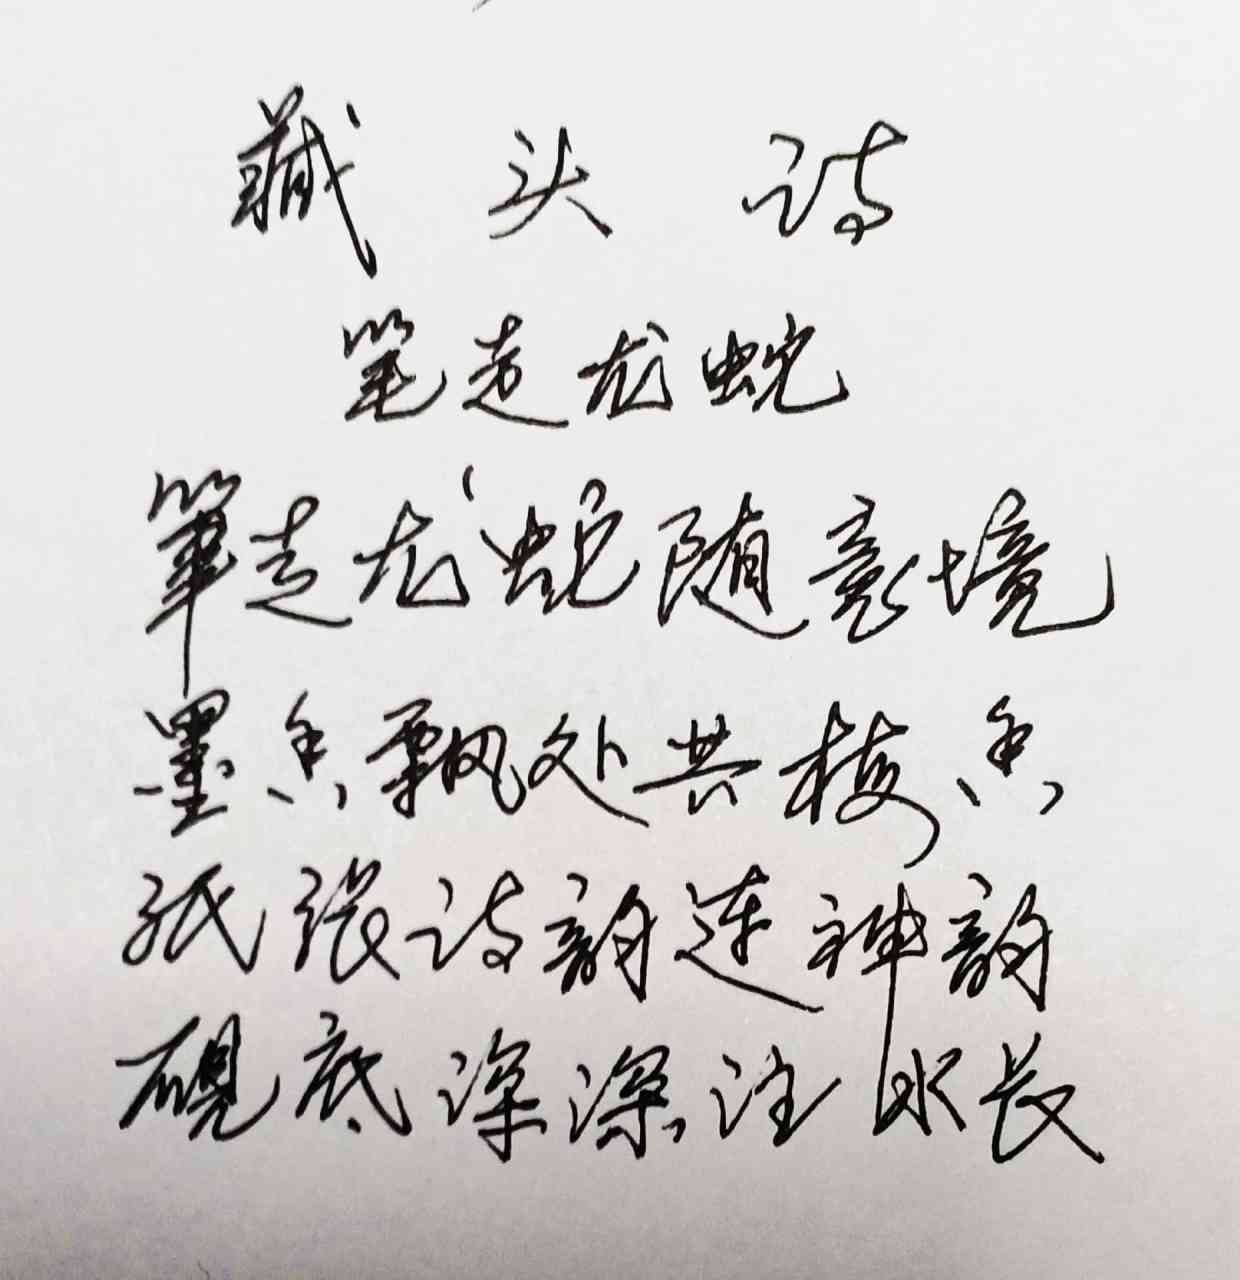 藏头诗
笔走龙蛇
筆走龙蛇随意境
墨香飘处共梅香
纸张诗韵连神韵
砚底深深注水长